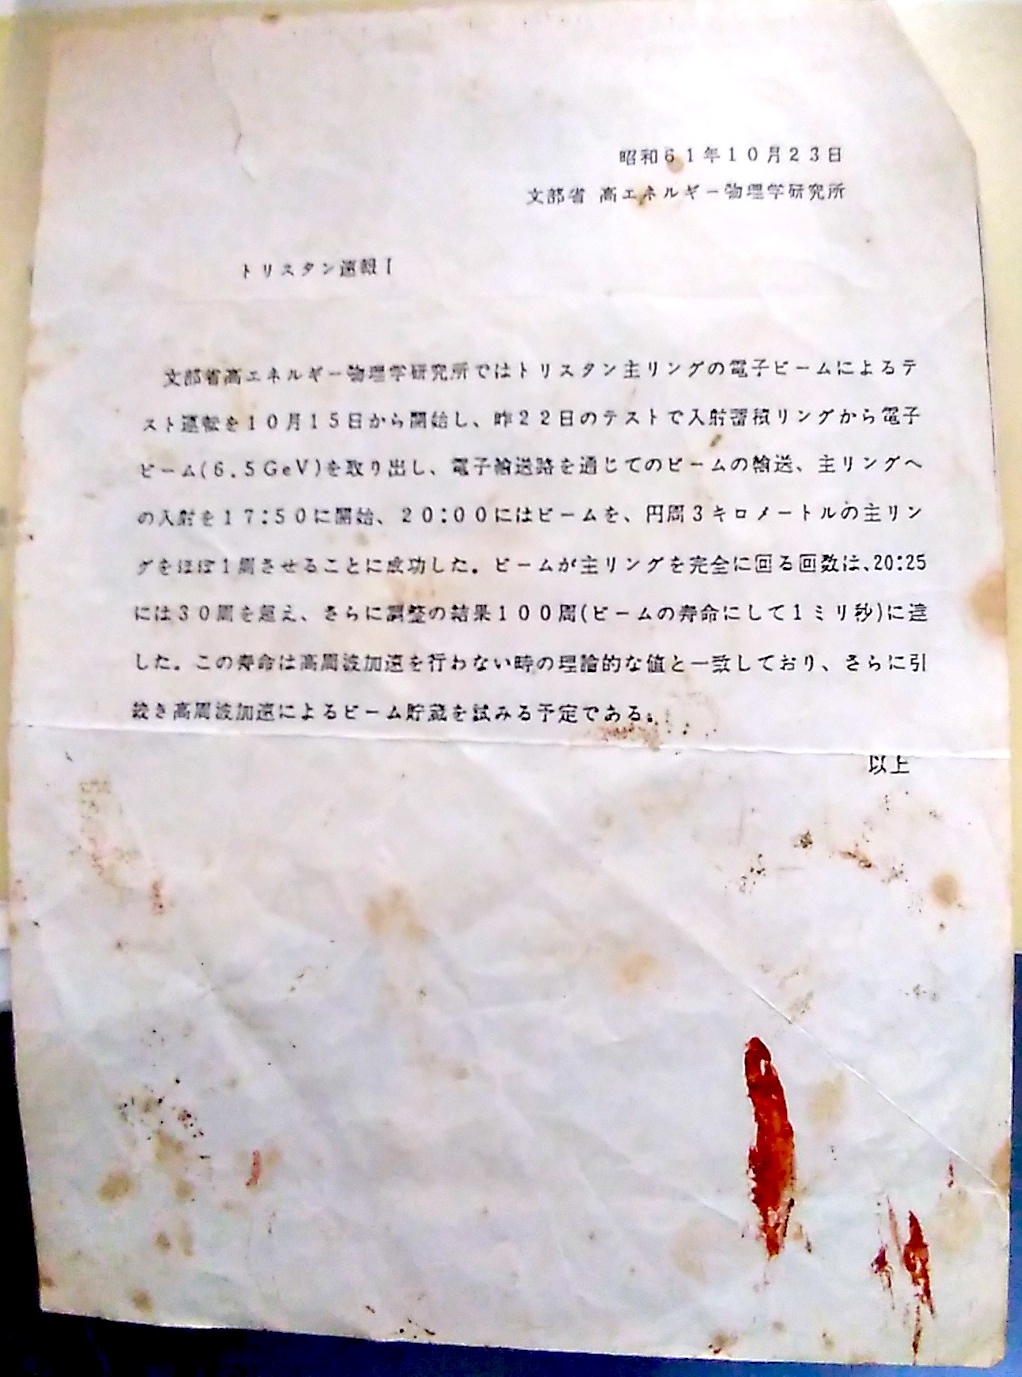 昭和61年10月23日
文部省 高エネルギー物理学研究所
トリスタン速報I
文部省高エネルギー物理学研究所ではトリスタン主リングの電子ビームによるテ
スト運転を10月15日から開始し、昨22日のテストで入射蓄積リングから電子
ビーム(6.5GeV)を取り出し、電子輸送路を通じてのビームの輸送、主リングへ
の入射を17:50に開始、20:00にはビームを、円周3キロメートルの主リン
グをほぼ1周させることに成功した。ビームが主リングを完全に回る回数は、20:25
には30周を超え、さらに調整の結果100周(ビームの寿命にして1ミリ秒)に達
した。この寿命は高周波加速を行わない時の理論的な値と一致しており、さらに引
続き高周波加速によるビーム貯蔵を試みる予定である。
以上